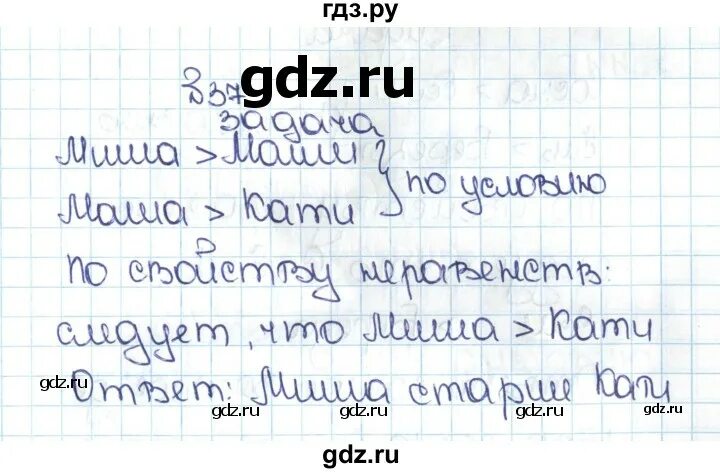 гдз.ру
gdz.ru
337
задача
Миша > Маши } по условию
Маша > Кати
по свойству неравенств:
следует, что Миша > Кати
gdz.ru
Ответ: Миша старши Кати
gdz.ru gdz.ru gdz.ru
gdz.ru